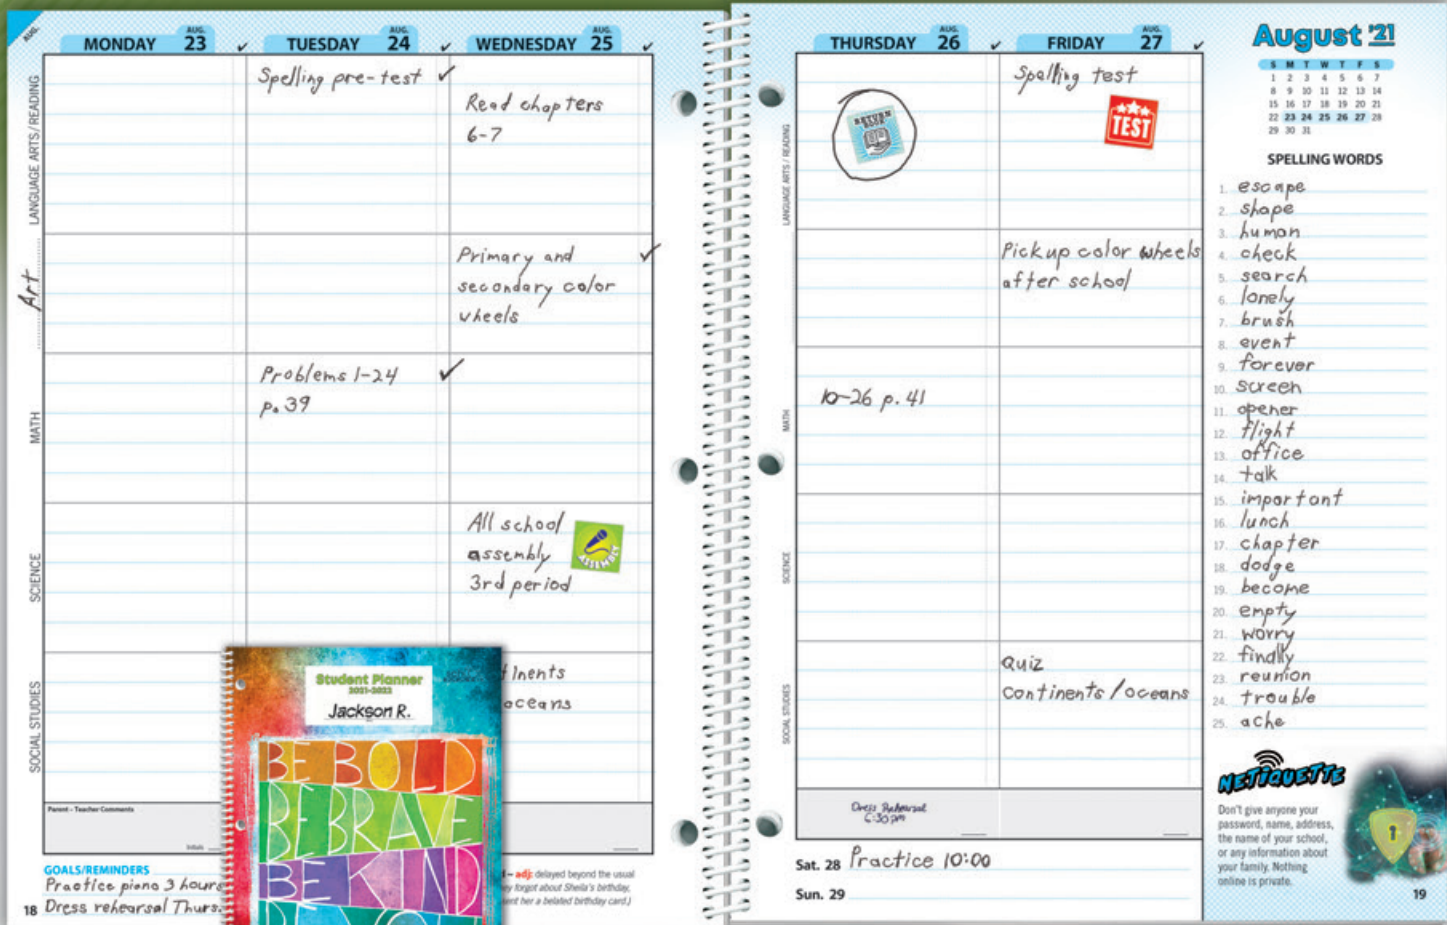 AUG.
MONDAY AUG. 23 ✓
TUESDAY AUG. 24 ✓
WEDNESDAY AUG. 25 ✓
LANGUAGE ARTS / READING
Spelling pre-test ✓
Read chapters
6-7
Art
Primary and ✓
secondary color
wheels
MATH
Problems 1-24 ✓
p. 39
SCIENCE
All school
assembly
3rd period
ASSEMBLY
SOCIAL STUDIES
tinents
oceans
Parent - Teacher Comments
Initials
GOALS/REMINDERS
Practice piano 3 hours
Dress rehearsal Thurs.
18
Student Planner
2021-2022
Jackson R.
BE BOLD
BE BRAVE
BE KIND
– adj: delayed beyond the usual
ey forgot about Sheila's birthday,
ent her a belated birthday card.)
THURSDAY AUG. 26 ✓
FRIDAY AUG. 27 ✓
LANGUAGE ARTS / READING
RETURN
BOOK
Spelling test
TEST
Pick up color wheels
after school
MATH
10-26 p. 41
SCIENCE
SOCIAL STUDIES
Quiz
Continents/oceans
Dress Rehearsal
6:30pm
Sat. 28 Practice 10:00
Sun. 29
August '21
S M T W T F S
1 2 3 4 5 6 7
8 9 10 11 12 13 14
15 16 17 18 19 20 21
22 23 24 25 26 27 28
29 30 31
SPELLING WORDS
1. escape
2. shape
3. human
4. check
5. search
6. lonely
7. brush
8. event
9. forever
10. screen
11. opener
12. flight
13. office
14. talk
15. important
16. lunch
17. chapter
18. dodge
19. become
20. empty
21. worry
22. finally
23. reunion
24. trouble
25. ache
NETIQUETTE
Don't give anyone your
password, name, address,
the name of your school,
or any information about
your family. Nothing
online is private.
19